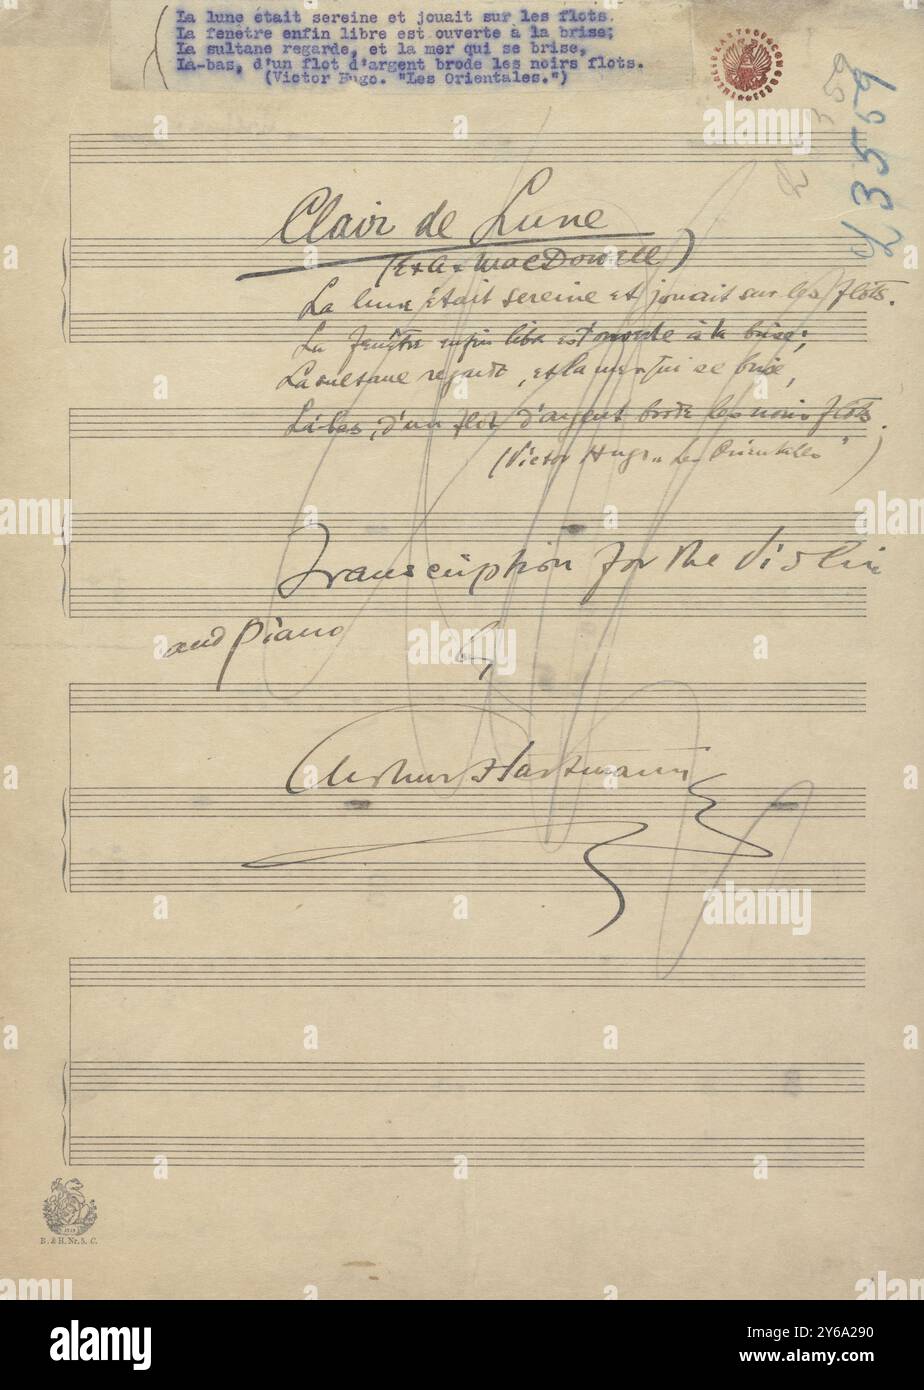 La lune était sereine et jouait sur les flots.
La fenêtre enfin libre est ouverte à la brise;
La sultane regarde, et la mer qui se brise,
Là-bas, d'un flot d'argent brode les noirs flots.
(Victor Hugo. "Les Orientales.")
THE LIBRARY OF CONGRESS
359
23559
Clair de Lune
MacDowell)
La lune était sereine et jouait sur les flots.
La fenêtre enfin libre est ouverte à la brise;
La sultane regarde, et la mer qui se brise,
Là-bas, d'un flot d'argent brode les noirs flots.
(Victor Hugo "Les Orientales")
Transcription for the Violin
and Piano
by
Arthur Hartmann
B. & H. Nr. 5. C.
alamy
alamy
Image ID: 2Y6A290
www.alamy.com